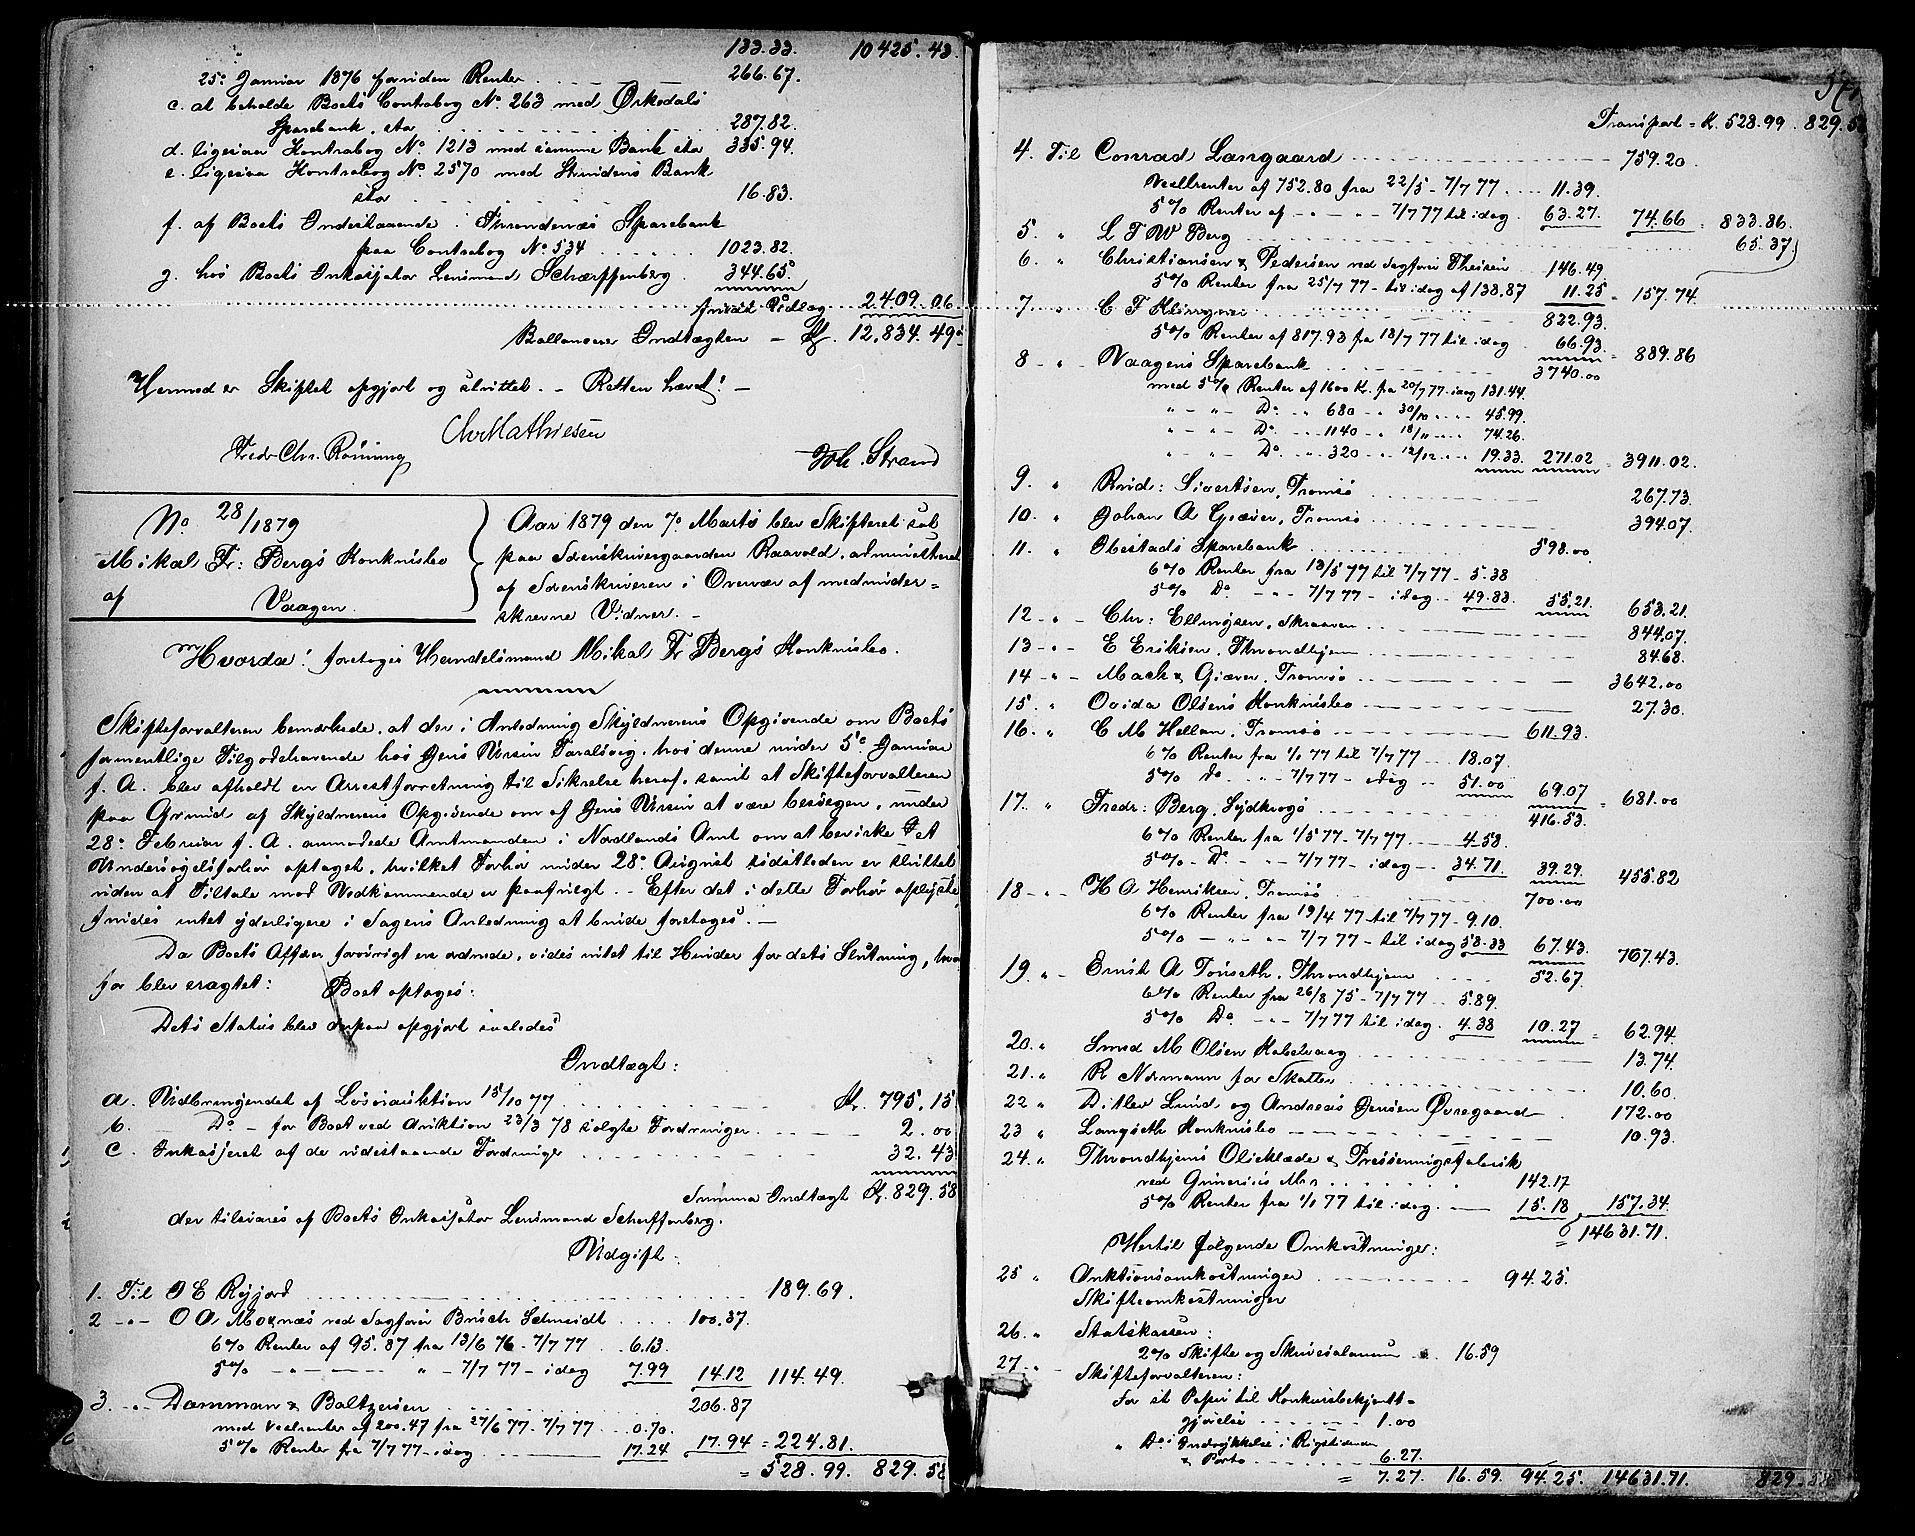 133.33. 10425.43.
25de Januar 1876 foruden Renter 266.67.
c. at beholde Boets Contrabog No. 263 med Ørkedals
Sparebank, stor 287.82.
d. ligesaa Kontrabog No. 1213 med samme Bank stor 335.94.
e. ligesaa Kontrabog No. 2570 med Strindens Bank
stor 16.83.
f. af Boets Indestaaende i Throndenæs Sparebank
paa Contrabog No 534 1023.82.
g. hos Boets Inkassator Lensmand Scharffenberg 344.65.
2409.06
Ballancerer Indtægten 12,834.49
Hermed er Skiftet opgjort og sluttet. – Retten hævet! –
Chr Mathiesen
Fredr Chr. Rönning Joh. Strand
No. 28/1879
Mikal Fr: Bergs Konkursbo
af Vaagen.
Aar 1879 den 7de Marts blev Skifteret sat
paa Sorenskrivergaarden Raavold, administreret
af Sorenskriveren i Overvær af medunder-
skrevne Vidner. –
Hvorda! foretoges Handelsmand Mikal Fr Bergs Konkursbo.
Skifteforvalteren bemærkede, at der i Anledning Skyldnerens Opgivende om Boets
formentlige Tilgodehavende hos Jens Ursin, hos denne under 5te Januar
f. A. blev afholdt en Arrestforretning til Sikrelse heraf, samt at Skifteforvalteren
paa Grund af Skyldnerens Opgivende om af Jens Ursin at være besvegen, under
28de Februar f. A. anmodede Amtmanden i Nordlands Amt om at bevirke Det
Undersøgelsforhør optaget, hvilket Forhør under 28de August sidstleden er sluttet
uden at Tiltale mod Vedkommende er paafulgt. – Efter det i dette Forhør oplyste
findes intet yderligere i Sagens Anledning at burde foretages. –
Da Boets Affærer forøvrigt ere ordnede, vides intet til Hinder for dets Slutning, hvor-
for blev eragtet: Boet optages:
Dets Status blev derpaa opgjort saaledes
Indtægt:
a. Udbringendet af Løsøreauktion 15/10 77 795.15
b. Do – for Boet ved Auktion 23/3 78 solgte Fordringer 2.00
c. Inkasseret af de udestaaende Fordringer 32.43
Summa Indtægt 829.58
der tilsvares af Boets Inkassator Lensmand Scharffenberg.
Udgift.
1. Til O E Rejjord 189.69.
2 – O A Moxnæs ved Sagfører Brüsch Schmidt 100.37.
6% Renter af 95.87 fra 13/6 76 – 7/7 77 6.13.
5% – " – " – 7/7 77 – idag 7.99 14.12 114.49.
3. " – Damman & Baltzersen 206.87
med Vexlrenter af 200.47 fra 27/6 77 – 7/7 77 0.70.
5% Renter fra 7/7 77 – idag 17.24 17.94 = 224.81.
= 528.99. 829.58
Transport = K. 528.99. 829.58
4. Til Conrad Langaard 759.20
Vexlrenter af 752.80 fra 22/5 – 7/7 77 11.39.
5% Renter af – " – " – 7/7 77 til idag 63.27. 74.66 = 833.86.
5. " L F W Berg 65.37
6. " Christiansen & Pedersen ved Sagfører Theisen 146.49.
5% Renter fra 25/7 77 – til idag af 138.87 11.25 = 157.74
7. " C F Klingwei 822.93.
5% Renter af 817.93 fra 18/7 77 til idag 66.93. = 889.86
8 – " Vaagens Sparebank 3740.00
med 5% Renter af 1600 K. fra 20/7 77 – idag 131.44.
" – " – Do. " 680 – " 30/10 " – " 45.99.
" – " – Do. " 1140 – " 18/11 " – " 74.26.
" – " – Do. " 320 " 12/12 " – " 19.33. 271.02 = 3911.02.
9. " Rud: Sivertsen, Tromsø 267.73
10. " Johan A Gjæver, Tromsø 394.07.
11. " Ibestads Sparebank 598.00
6% Renter fra 13/5 77 til 7/7 77 – 5.38
5% Do. – " – 7/7 77 – idag 49.83. 55.21. 653.21.
12 – " – Chr: Ellingsen, Skraaven 844.07.
13 – " – E Eriksen, Throndhjem 84.68.
14 – " – Mack & Giæver, Tromsø 3642.00
15. " Ovida Olsens Konkursbo 27.30.
16. " C M Hellan, Tromsø 611.93.
6% Renter fra 1/1 77 til 7/7 77 18.07
5% Do. " – 7/7 77 – idag 51.00 69.07 = 681.00
17. " Fredr: Berg, Sydkrogö 416.53.
6% Renter fra 1/5 77 – 7/7 77 4.58.
5% – Do. – " – 7/7 77 – idag 34.71. 39.29. 455.82
18 – " – H A Henriksen, Tromsø 700.00
6% Renter fra 19/4 77 – til 7/7 77 – 9.10.
5% – " – " – 7/7 77 – til idag 58.33 67.43. 767.43.
19 " – Ernst A Tønseth, Throndhjem 52.67
6% Renter fra 26/8 75 – 7/7 77 5.89.
5% Do. – " – 7/7 77 til idag. 4.38 10.27 = 62.94.
20. " Smed M Olsen Kabelvaag 13.74.
21. " R Normann for Skatter 10.60.
22 " – Ditlev Lund og Andreas Jensen Øvregaard 172.00
23 " Langseth Konkursbo 10.93.
24. " Throndhjems Olieklæde & Presenningsfabrik
ved 142.17
5% Renter fra 1/1 77 til idag. 15.18 157.34.
= 14631.71.
Hertil følgende Omkostninger:
25 " Auktionsomkostninger 94.25.
Skifteomkostninger
26. " Statskassen:
2% Skifte og Skriversalarium 16.59
27 – " – Skifteforvalteren:
For st. Papir til Konkursbekjendt-
gjørelse 1.00
" Do. Indrykkelse i Rigstidenden
& Porto 6.27.
= 7.27. 16.59. 94.25. 14631.71. 829.58